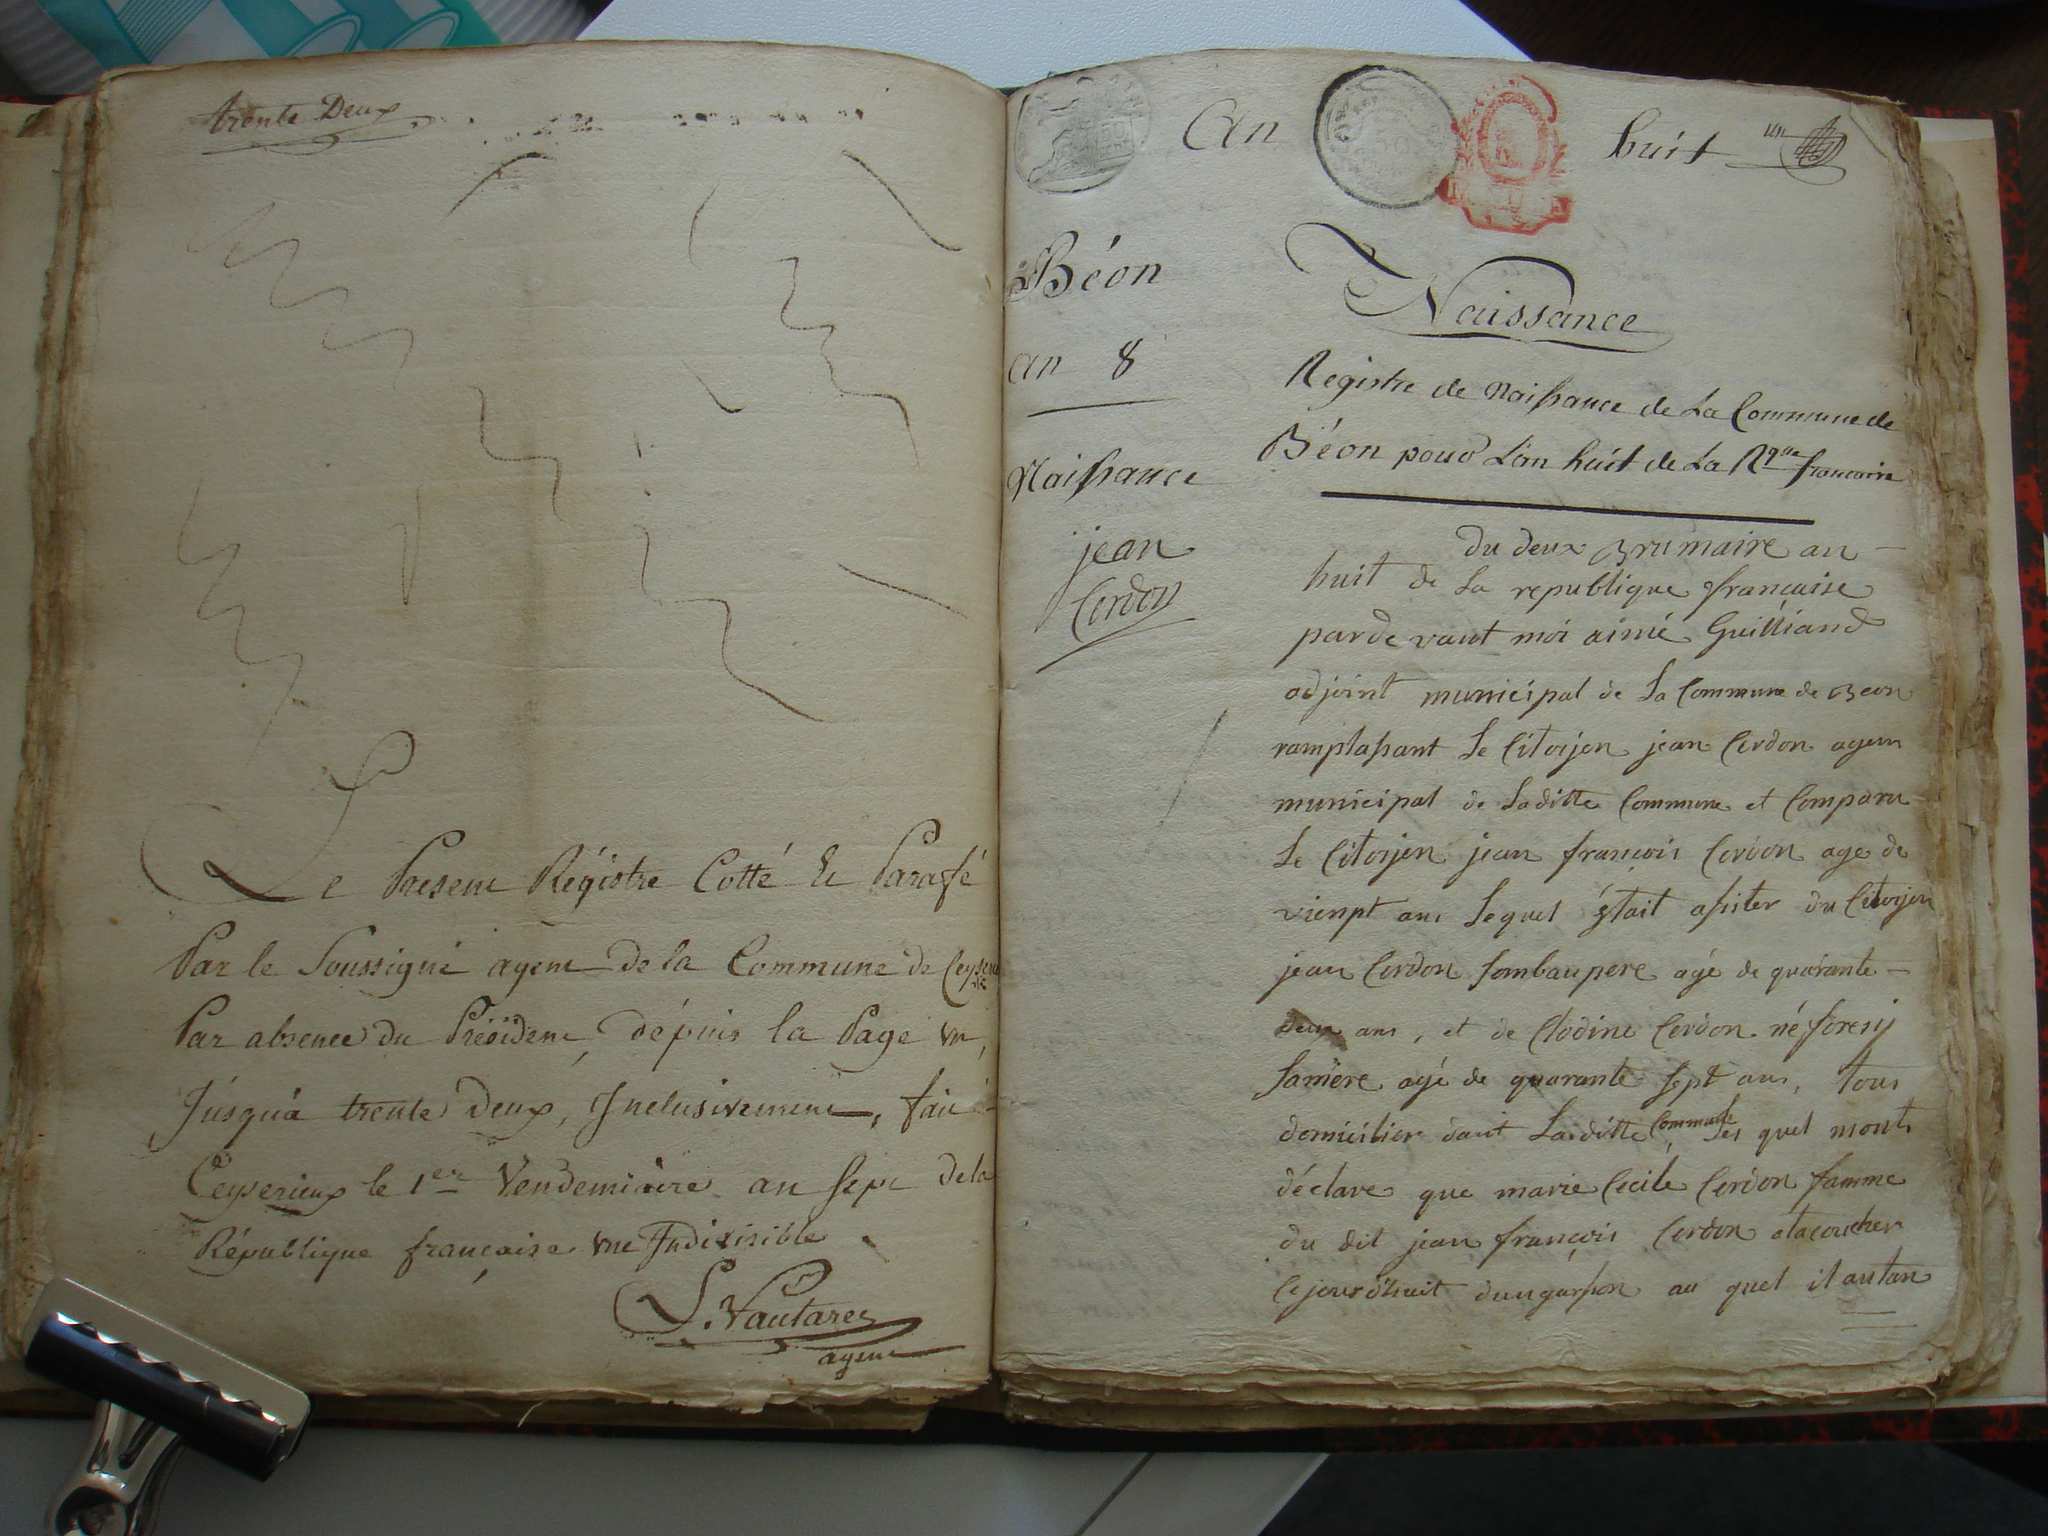 trente Deux
Le Present Régistre Cotté Et Paraffé
Par le Soussigné agent de la Commune de
Par absence du Président, dépuis la Page un,
Jusqu'à trente Deux, Inclusivement, fait
Ceyserieux le 1er Vendemiaire an Sept de la
République française une Indivisible
P. Vautaret
agent
An huit un
Béon
an 8
Naissance
jean
Cerdon
Naissance
Régistre de Naissance de La Commune de
Béon pour L'an huit de La Rque francaise
Du deux Brumaire an
huit de La republique francaise
parde vant moi aimé Guilliand
adjoint municipal de La Commune de Beon
ramplassant Le Citoijen jean Cerdon agent
municipal de Laditte Commune et Comparu
Le Citoijen jean françois Cerdon age de
vienpt ans Lequel était assister du Citoijen
jean Cerdon sombaupere agé de quarante
deux ans, et de Clodine Cerdon né foresij
Samere agé de quarante sept ans, tous
domicilier dant Laditte Commune Les quel mont
déclare que marie Cecile Cerdon famme
du dit jean françois Cerdon atacoucher
Cejourdhuit dungarson au quel il autan